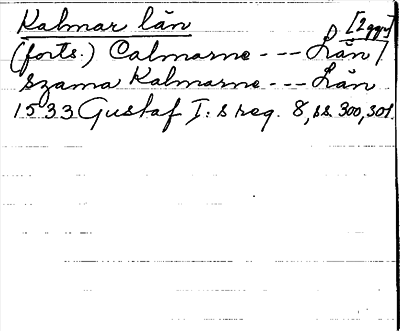 Kalmar län
(forts.) Calmarne --- Län [2 ggr]
szama Kalmarne --- Län
1533 Gustaf I:s reg. 8, ss. 300, 301.